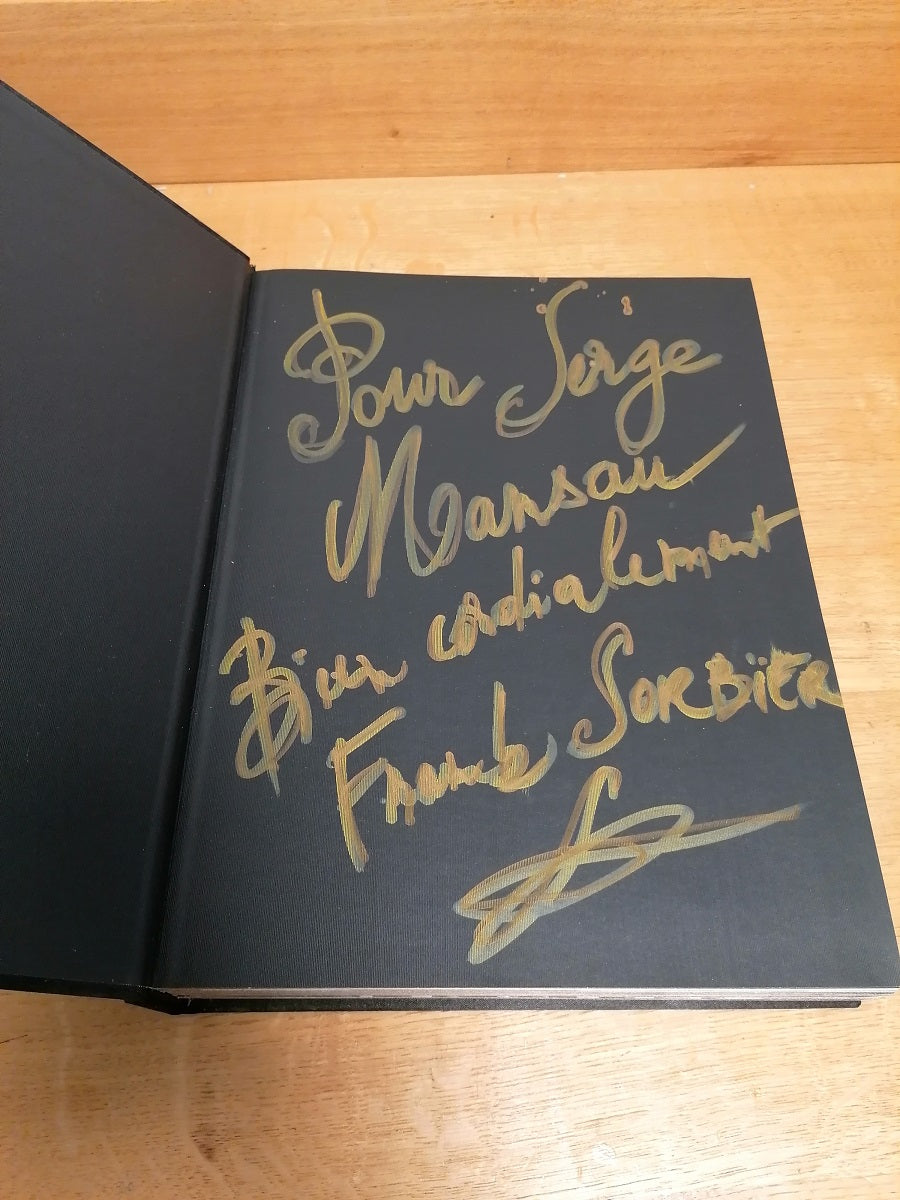 Pour Serge
Mansau
Bien cordialement
Franck SORBiER